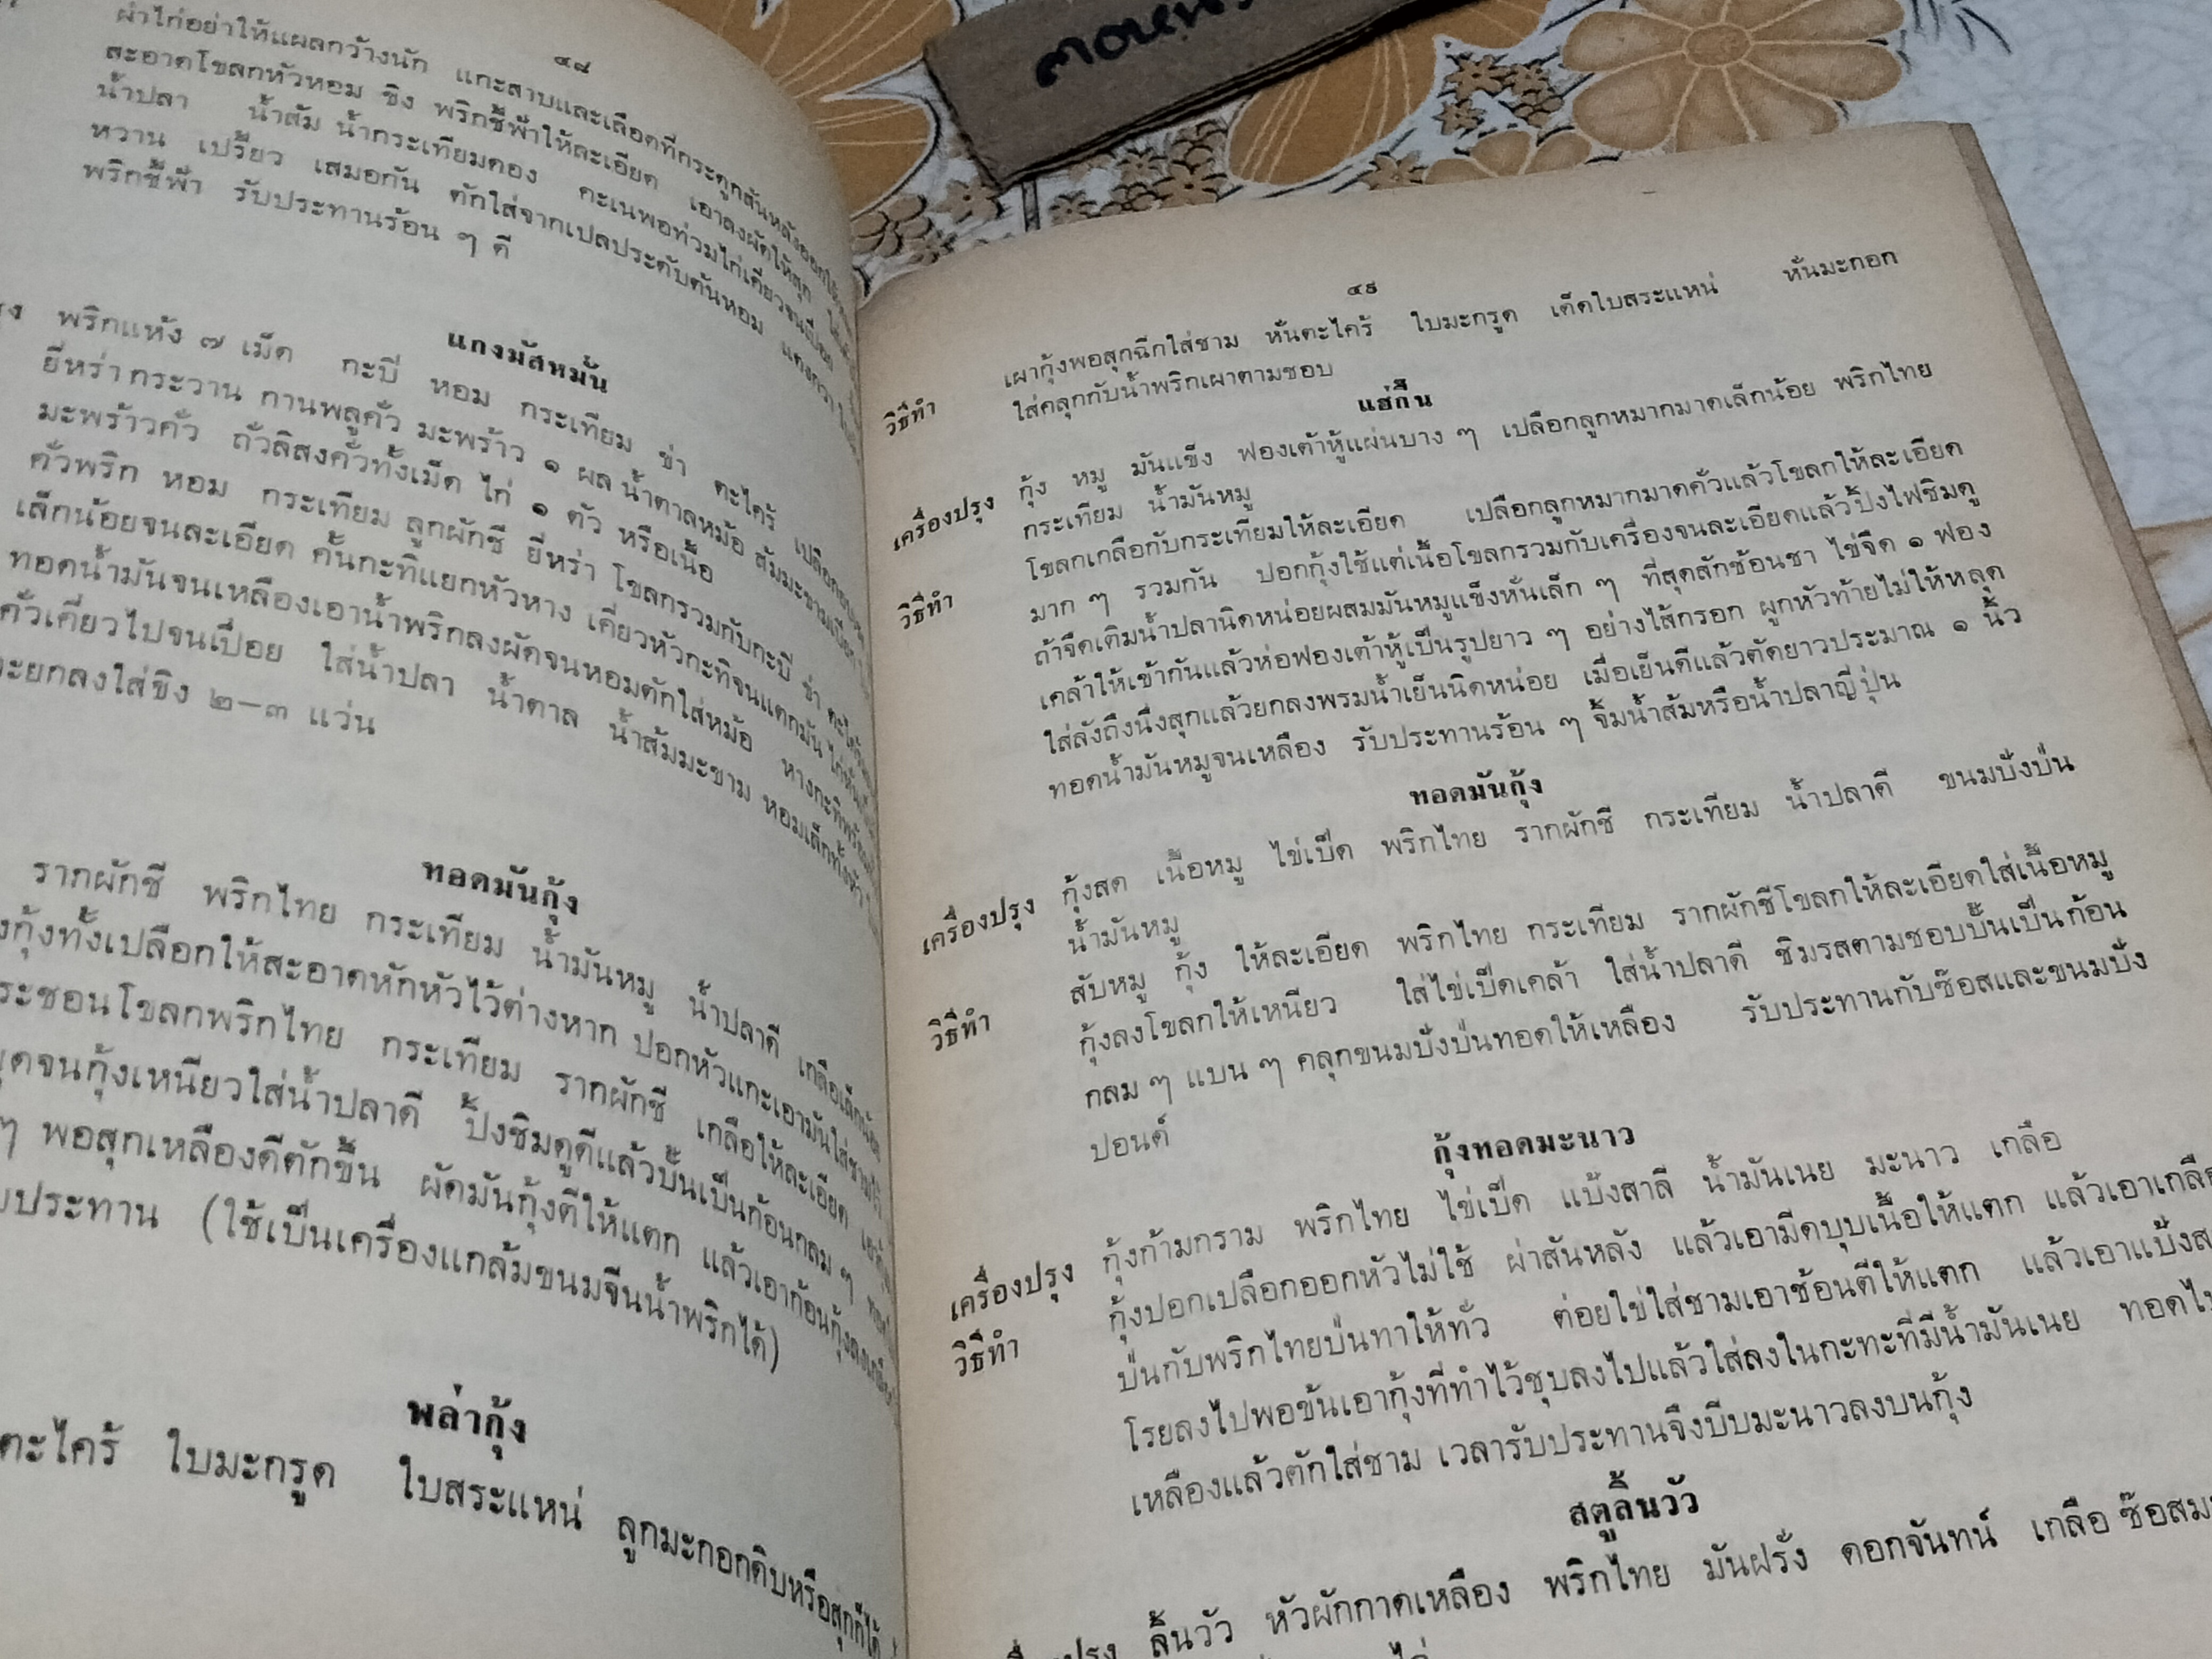 ๔๘
ผ่าไก่อย่าให้แผลกว้างนัก แกะสาบและเลือดที่กระดูกสันหลังออกให้
สะอาดโขลกหัวหอม ขิง พริกชี้ฟ้าให้ละเอียด เอาลงผัดให้สุก
น้ำปลา น้ำส้ม น้ำกระเทียมดอง คะเนพอท่วมไก่เคี่ยวจนเปื่อย
หวาน เปรี้ยว เสมอกัน ตักใส่จากเปลประดับต้นหอม แตงกวา
พริกชี้ฟ้า รับประทานร้อน ๆ ดี
แกงมัสหมั่น
พริกแห้ง ๗ เม็ด กะบี่ หอม กระเทียม ข่า ตะไคร้
ยี่หร่า กระวาน กานพลูคั่ว มะพร้าว ๑ ผล น้ำตาลหม้อ ส้มมะขามเปียก
มะพร้าวคั่ว ถั่วลิสงคั่วทั้งเม็ด ไก่ ๑ ตัว หรือเนื้อ
คั่วพริก หอม กระเทียม ลูกผักชี ยี่หร่า โขลกรวมกับกะบี่ ข่า ตะไคร้
เล็กน้อยจนละเอียด คั้นกะทิแยกหัวหาง เคี่ยวหัวกะทิจนแตกมัน
ทอดน้ำมันจนเหลืองเอาน้ำพริกลงผัดจนหอมตักใส่หม้อ
คั่วเคี่ยวไปจนเปื่อย ใส่น้ำปลา น้ำตาล น้ำส้มมะขาม หอมเล็กทั้งหัว
ยกลงใส่ขิง ๒–๓ แว่น
ทอดมันกุ้ง
รากผักชี พริกไทย กระเทียม น้ำมันหมู น้ำปลาดี เกลือเล็กน้อย
กุ้งทั้งเปลือกให้สะอาดหักหัวไว้ต่างหาก ปอกหัวแกะเอามันใส่ชามไว้
ระชอนโขลกพริกไทย กระเทียม รากผักชี เกลือให้ละเอียด
จนกุ้งเหนียวใส่น้ำปลาดี ปิ้งชิมดูดีแล้วปั้นเป็นก้อนกลม ๆ
ๆ พอสุกเหลืองดีตักขึ้น ผัดมันกุ้งตีให้แตก แล้วเอาก้อนกุ้งลง
ประทาน (ใช้เป็นเครื่องแกล้มขนมจีนน้ำพริกได้)
พล่ากุ้ง
ตะไคร้ ใบมะกรูด ใบสระแหน่ ลูกมะกอกดิบหรือสุกก็ได้
๔๙
วิธีทำ เผากุ้งพอสุกฉีกใส่ชาม หั่นตะไคร้ ใบมะกรูด เด็ดใบสระแหน่ หั่นมะกอก
ใส่คลุกกับน้ำพริกเผาตามชอบ
แฮ่กึ๊น
เครื่องปรุง กุ้ง หมู มันแข็ง ฟองเต้าหู้แผ่นบาง ๆ เปลือกลูกหมากมาดเล็กน้อย พริกไทย
กระเทียม น้ำมันหมู
วิธีทำ โขลกเกลือกับกระเทียมให้ละเอียด เปลือกลูกหมากมาดคั่วแล้วโขลกให้ละเอียด
มาก ๆ รวมกัน ปอกกุ้งใช้แต่เนื้อโขลกรวมกับเครื่องจนละเอียดแล้วปิ้งไฟชิมดู
ถ้าจืดเติมน้ำปลานิดหน่อยผสมมันหมูแข็งหั่นเล็ก ๆ ที่สุดสักช้อนชา ไข่จืด ๑ ฟอง
เคล้าให้เข้ากันแล้วห่อฟองเต้าหู้เป็นรูปยาว ๆ อย่างไส้กรอก ผูกหัวท้ายไม่ให้หลุด
ใส่ลังถึงนึ่งสุกแล้วยกลงพรมน้ำเย็นนิดหน่อย เมื่อเย็นดีแล้วตัดยาวประมาณ ๑ นิ้ว
ทอดน้ำมันหมูจนเหลือง รับประทานร้อน ๆ จิ้มน้ำส้มหรือน้ำปลาญี่ปุ่น
ทอดมันกุ้ง
เครื่องปรุง กุ้งสด เนื้อหมู ไข่เป็ด พริกไทย รากผักชี กระเทียม น้ำปลาดี ขนมปังป่น
น้ำมันหมู
วิธีทำ สับหมู กุ้ง ให้ละเอียด พริกไทย กระเทียม รากผักชีโขลกให้ละเอียดใส่เนื้อหมู
กุ้งลงโขลกให้เหนียว ใส่ไข่เป็ดเคล้า ใส่น้ำปลาดี ชิมรสตามชอบปั้นเป็นก้อน
กลม ๆ แบน ๆ คลุกขนมปังป่นทอดให้เหลือง รับประทานกับซ๊อสและขนมปัง
ปอนด์
กุ้งทอดมะนาว
เครื่องปรุง กุ้งก้ามกราม พริกไทย ไข่เป็ด แป้งสาลี น้ำมันเนย มะนาว เกลือ
วิธีทำ กุ้งปอกเปลือกออกหัวไม่ใช้ ผ่าสันหลัง แล้วเอามีดบุบเนื้อให้แตก แล้วเอาเกลือ
ป่นกับพริกไทยป่นทาให้ทั่ว ต่อยไข่ใส่ชามเอาช้อนตีให้แตก แล้วเอาแป้ง
โรยลงไปพอข้นเอากุ้งที่ทำไว้ชุบลงไปแล้วใส่ลงในกะทะที่มีน้ำมันเนย ทอด
เหลืองแล้วตักใส่ชาม เวลารับประทานจึงบีบมะนาวลงบนกุ้ง
สตูลิ้นวัว
ลิ้นวัว หัวผักกาดเหลือง พริกไทย มันฝรั่ง ดอกจันทน์ เกลือ ซ๊อส